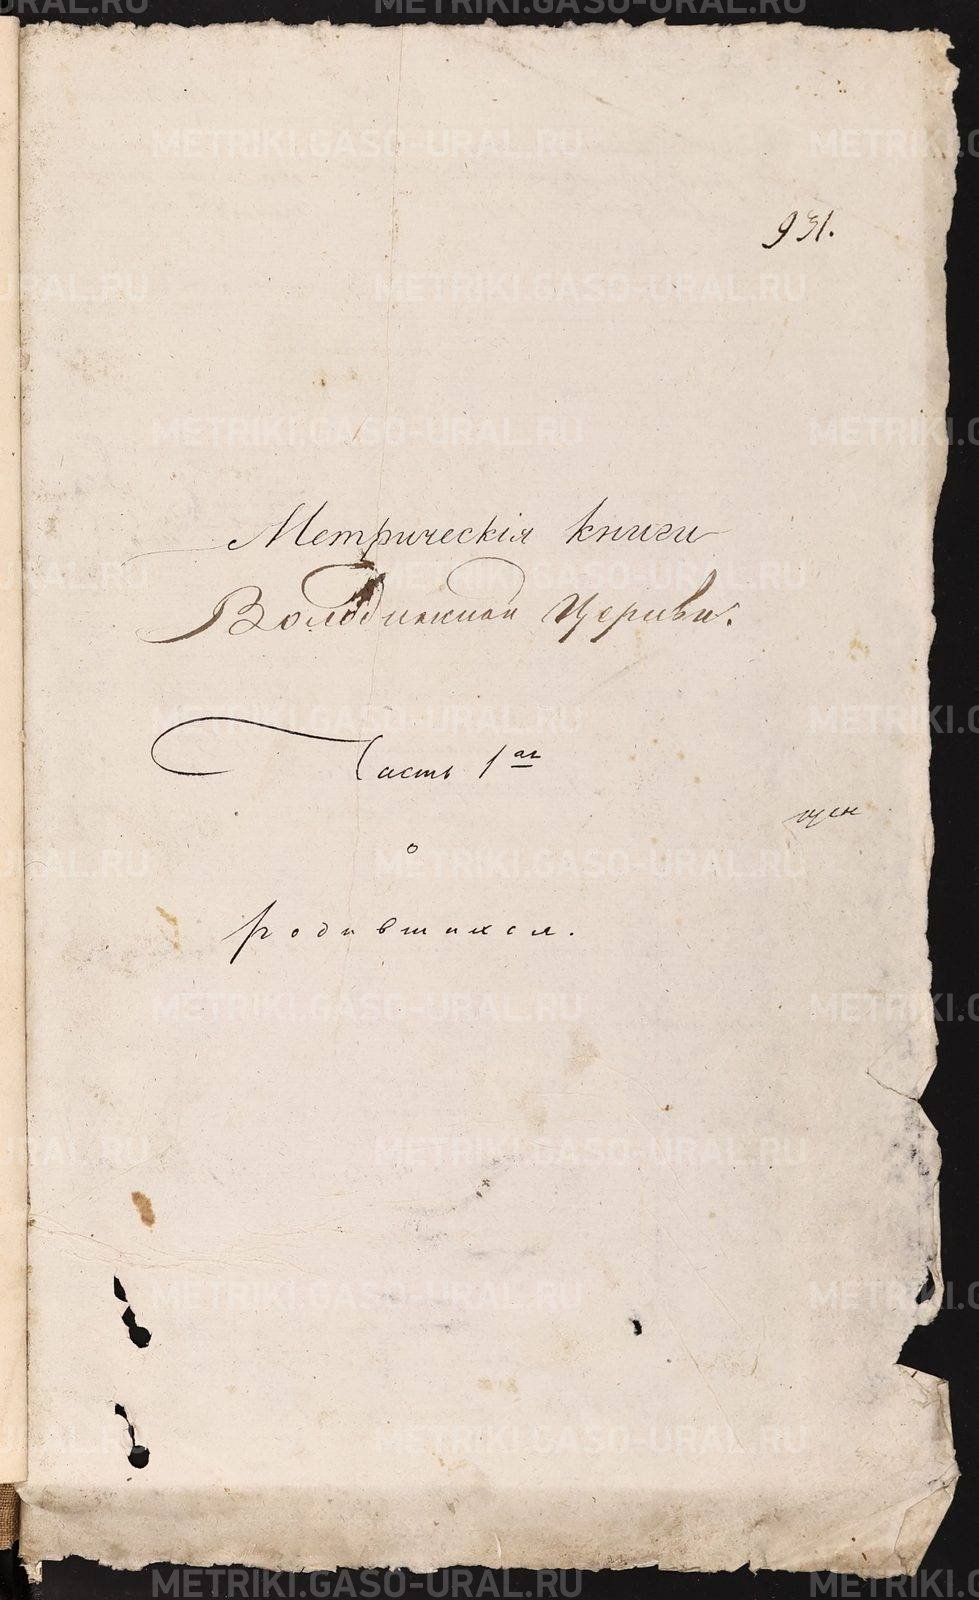 931.
Метрическія книги
Володинской Церкви.
Часть 1ая
о
родившихся.
METRIKI.GASO-URAL.RU